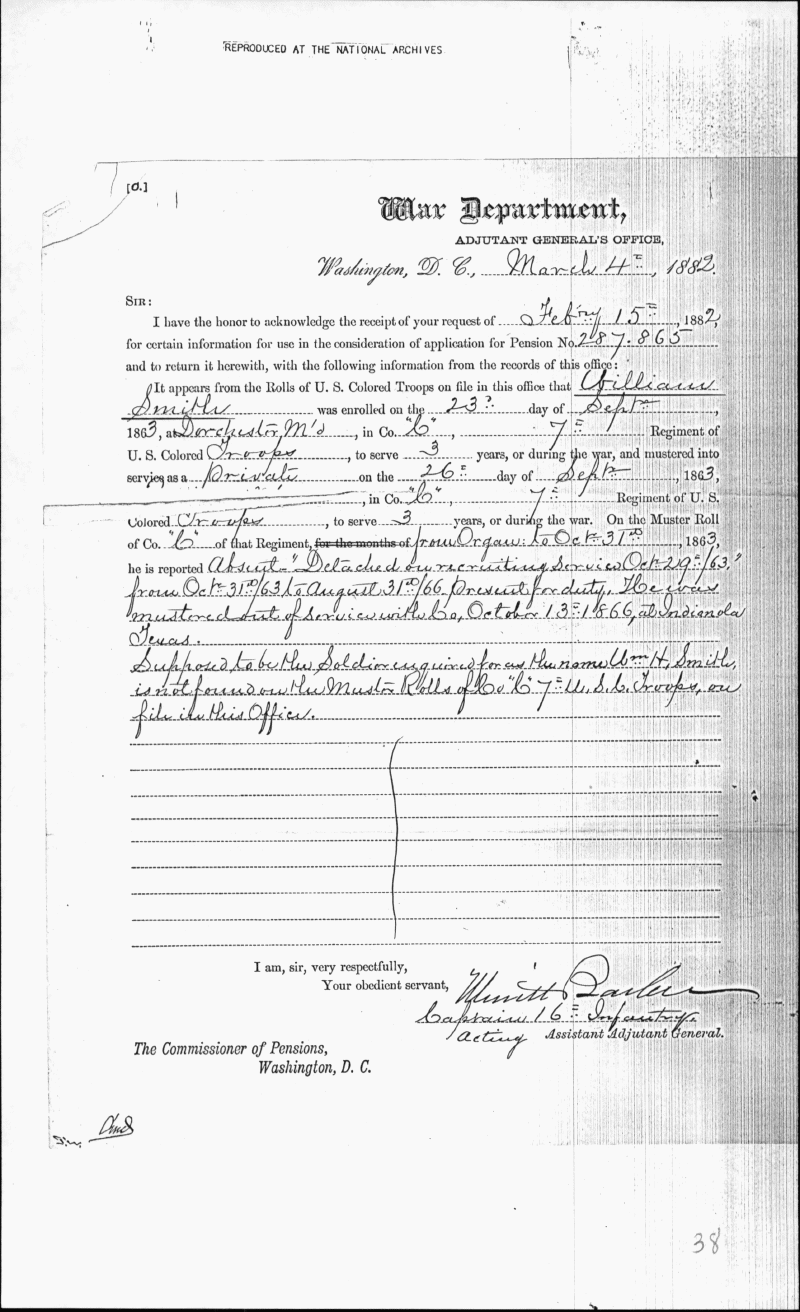 REPRODUCED AT THE NATIONAL ARCHIVES
[O.]
War Department,
ADJUTANT GENERAL'S OFFICE,
Washington, D. C., March 4th, 1882.
SIR:
I have the honor to acknowledge the receipt of your request of Feb'ry 15th, 1882,
for certain information for use in the consideration of application for Pension No. 287.865
and to return it herewith, with the following information from the records of this office:
It appears from the Rolls of U. S. Colored Troops on file in this office that William
Smith was enrolled on the 23d day of Septr,
1863, at Dorchester, M'd, in Co. "C", 7th Regiment of
U. S. Colored Troops, to serve 3 years, or during the war, and mustered into
service as a Private on the 26th day of Septr, 1863,
, in Co. "C", 7th Regiment of U. S.
Colored Troops, to serve 3 years, or during the war. On the Muster Roll
of Co. "C" of that Regiment, for the months of from Organ: to Oct 31st, 1863,
he is reported Absent - "Detached on recruiting service Oct 29th/63,"
from Oct 31st/63 to August 31st/66 present for duty. He was
mustered out of service with Co, October 13th 1866, at Indianola
Texas.
Supposed to be the Soldier enquired for as the name Wm H. Smith,
is not found on the Muster Rolls of Co "C" 7th U. S. C. Troops, on
file in this Office.
I am, sir, very respectfully,
Your obedient servant,
Merritt Barber
Captain 16th Infantry.
Acting Assistant Adjutant General.
The Commissioner of Pensions,
Washington, D. C.
38